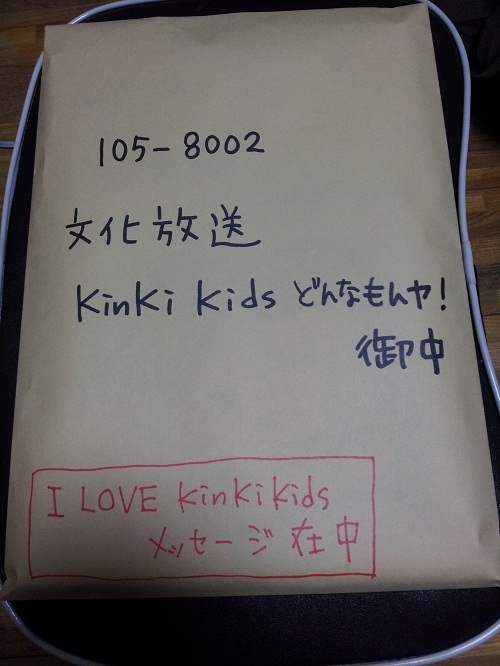 105-8002
文化放送
Kinki Kids どんなもんヤ!
御中
I LOVE Kinki Kids
メッセージ在中